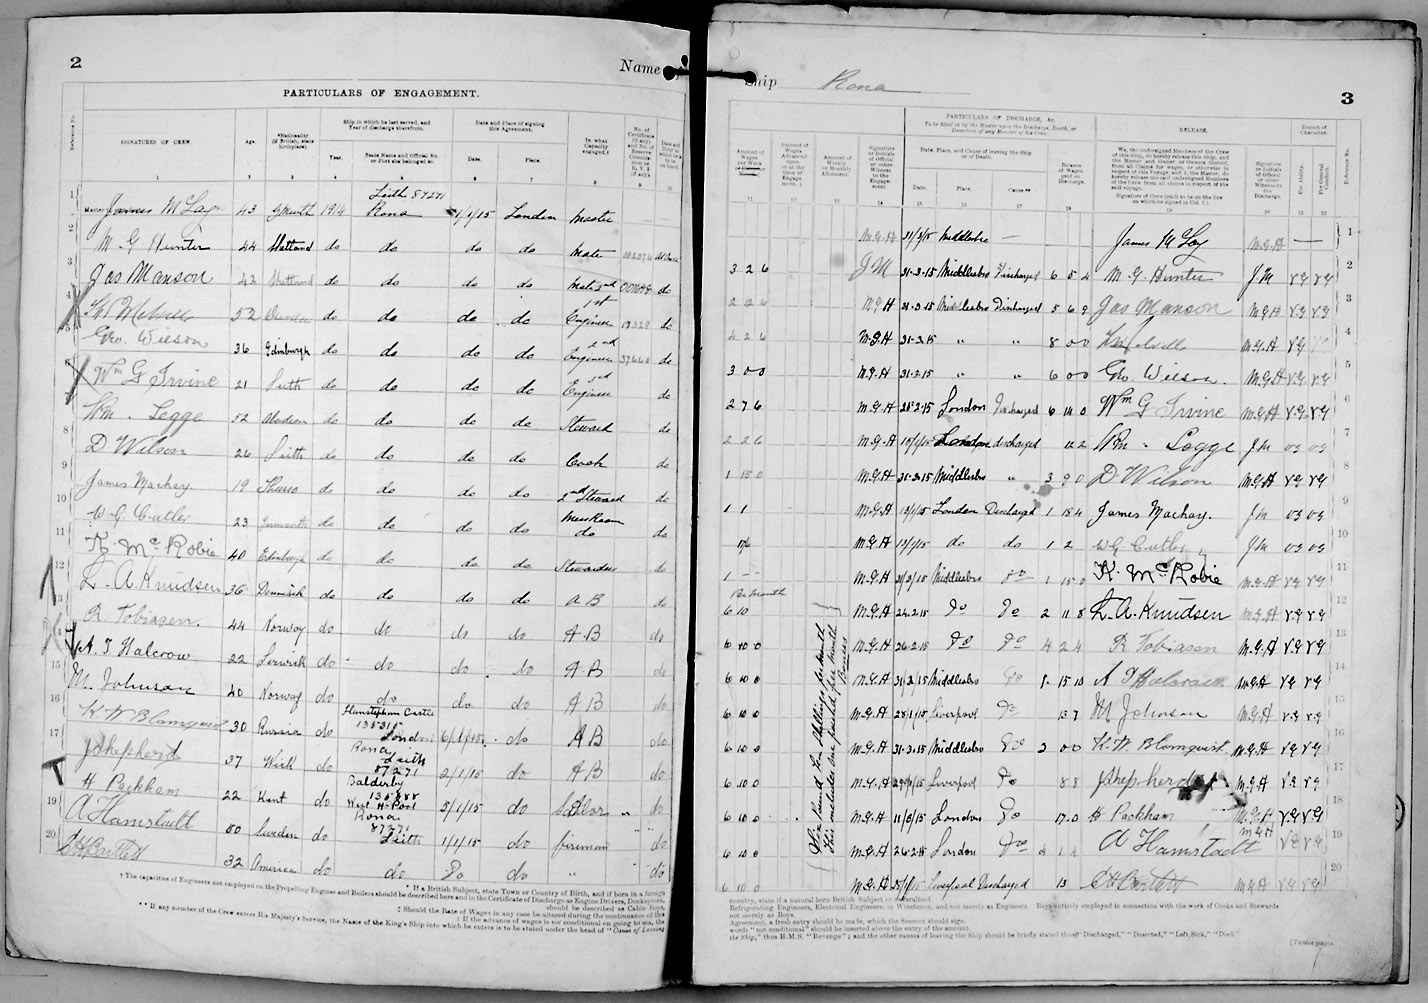 2
Name
PARTICULARS OF ENGAGEMENT.
Reference No.
SIGNATURES OF CREW.
Age.
*Nationality (if British, state birthplace).
Ship in which he last served, and Year of discharge therefrom.
Year.
State Name and Official No. or Port she belonged to.
Date and Place of signing this Agreement.
Date.
Place.
In what Capacity engaged.†
1 James McLay 43 1914 Leith 87271 Rona 1/1/15 London Master
M. G. Hunter 44 Shetland do do do do Mate
Jas Manson 42 Shetland do do do do Mate 2nd do
52 do do do do 1st Engineer do
Geo. Wilson 36 Edinburgh do do do do 2nd Engineer 37660 do
Wm G Irvine 21 Leith do do do do 3rd Engineer do
Wm. Legge 52 Aberdeen do do do do Steward do
D Wilson 26 Leith do do do do Cook do
James Mackay 19 Thurso do do do do 2nd Steward do
W G Cutler 23 do do do do Mess Room do do
K. McRobie 40 Edinburgh do do do do Stewardess do
L. A. Knudsen 36 Denmark do do do do A B do
R Tobiasen. 44 Norway do do do do A B do
A. J Halcrow 22 Lerwick do do do do A B do
M. Johnson 40 Norway do do do do A B do
K. W Blomqvist 30 Russia do Llanstephan Castle 135315 London 6/1/15 do A B do
J Shepherd 37 Wick do Rona Leith 87271 2/1/15 do A B do
H Packham 22 Kent do 135888 West H-Pool 5/1/15 do Sailor " do
A Hamstadt 50 Sweden do Rona 87271 Leith 1/1/15 do fireman do
C H Bartlett 32 America do do do do " do
† The capacities of Engineers not employed on the Propelling Engines and Boilers should be described here and in the Certificate of Discharge as Engine Drivers, Donkeymen,
* If a British Subject, state Town or Country of Birth, and if born in a foreign
should be described as Cabin Boys,
‡ Should the Rate of Wages in any case be altered during the continuance of this
** If any member of the Crew enters His Majesty's Service, the Name of the King's Ship into which he enters is to be stated under the head of "Cause of Leaving
Ship Rona
3
PARTICULARS OF DISCHARGE, &c.
To be filled in by the Master upon the Discharge, Death, or Desertion of any Member of his Crew.
Date, Place, and Cause of leaving this Ship or of Death.
Date.
Place.
Cause.**
Balance of Wages paid on Discharge.
RELEASE.
We, the undersigned Members of the Crew of this Ship, do hereby release this Ship, and the Master and Owner or Owners thereof, from all Claims for wages, or otherwise in respect of this Voyage, and I, the Master, do hereby release the said undersigned Members of the Crew from all claims in respect of the said voyage.
Signature of Crew (each to be on the line on which he signed in Col. 1.)
Report of Character.
For Ability.
For General Conduct.
Reference No.
M.G.H 31/3/15 Middlesbro — James McLay M.G.H — 1
3 2 6 J M 31-3-15 Middlesbro Discharged 6 5 4 M. G. Hunter J M V.G V.G 2
2 2 6 M G H 31-3-15 Middlesbro Discharged 5 6 9 Jas Manson M G H V.G V.G 3
4 2 6 M.G.H 31-3-15 " " 8 0 0 M.G.H V.G V.G 4
3 0 0 M.G.H 31-3-15 " " 6 0 0 Geo. Wilson. M.G.H V.G V.G 5
2 7 6 M.G.H London Discharged 6 14 0 Wm G Irvine M.G.H V.G V.G 6
2 2 6 M.G.H London discharged 12 2 Wm. Legge J M 7
1 15 0 M.G.H 31-3-15 Middlesbro " 3 9 0 D Wilson M.G.H V.G V.G 8
1 1 M.G.H 13/1/15 London Discharged 1 15 4 James Mackay. J M 9
17/6 M.G.H 13/1/15 do do 1 2 W G Cutler J M 10
1 — — M.G.H 31/3/15 Middlesbro do 1 15 0 K. McRobie M.G.H V.G V.G 11
Per Month
6 10 M.G.H 26.2.15 Do Do 2 11 8 L. A. Knudsen M.G.H V.G V.G 12
6 10 0 M.G.H 26-2-15 Do Do 4 2 4 R Tobiasen M.G.H V.G V.G 13
6 10 0 M.G.H 31/3/15 Middlesbro Do 8. 15 10 A J Halcrow M.G.H V.G V.G 14
6 10 0 M.G.H 28/1/15 Liverpool Do 13 7 M Johnson M.G.H V.G V.G 15
6 10 0 M.G.H 31-3-15 Middlesbro Do 3 0 0 K. W. Blomqvist M.G.H V.G V.G 16
6 10 0 M.G.H Liverpool Do 8 8 J Shepherd M.G.H V.G V.G 17
6 10 0 M.G.H London Do 17.0 H Packham V.G V.G 18
6 10 0 M.G.H 26-2-15 London Do 4 1 4 A Hamstadt M G H V.G V.G 19
6 10 0 M.G.H Liverpool Discharged 13 C H Bartlett M.G.H V.G V.G 20
Six Pound Ten Shillings per month
This includes one pound per month Bonus
country, state if a natural born British Subject or naturalised.
Refrigerating Engineers, Electrical Engineers, or Winchmen, and not merely as Engineers. Boys entirely employed in connection with the work of Cooks and Stewards
not merely as Boys.
Agreement, a fresh entry should be made, which the Seamen should sign.
words "not conditional" should be inserted above the entry of the amount.
the Ship," thus H.M.S. "Revenge"; and the other causes of leaving the Ship should be briefly stated thus "Discharged," "Deserted," "Left Sick," "Died."
[Twelve pages.